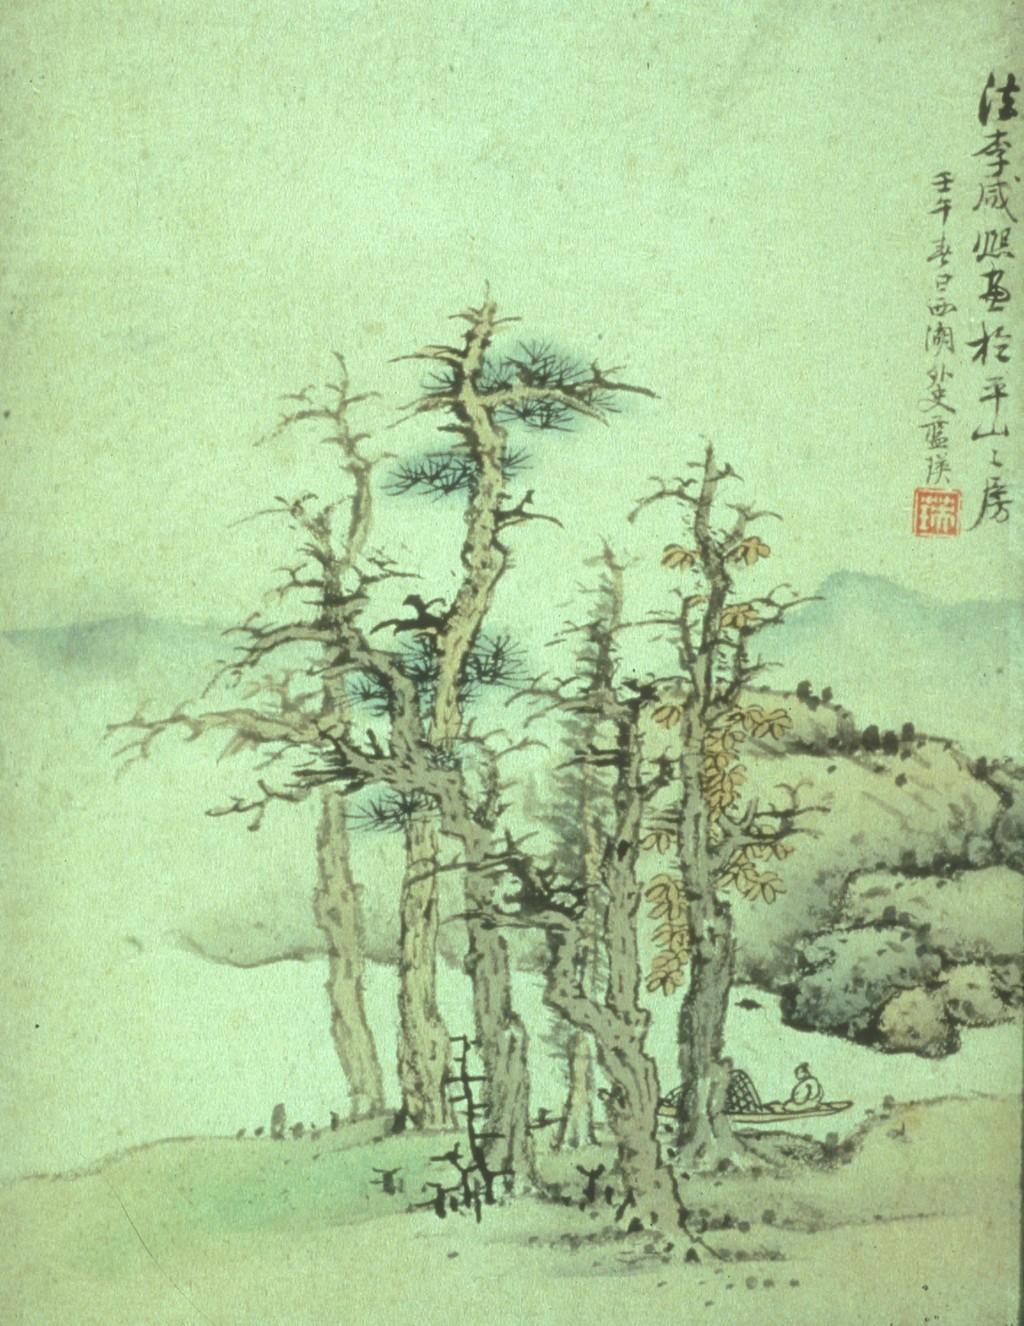 法李咸熙畫於平山々房
壬午春日西湖外史藍瑛